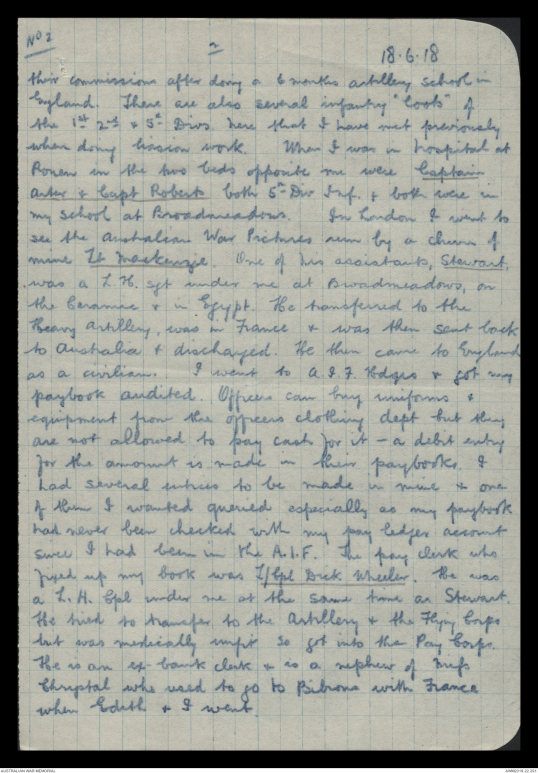 No 2
2
18.6.18
their commissions after doing a 6 months artillery school in
England. There are also several infantry "loots" of
the 1st 2nd & 5th Divs here that I have met previously
when doing liaison work. When I was in hospital at
Rouen in the two beds opposite me were Captain
Arter & Capt Roberts both 5th Div Inf. & both were in
my school at Broadmeadows. In London I went to
see the Australian War Pictures run by a chum of
mine Lt Mackenzie. One of his assistants, Stewart,
was a L.H. sgt under me at Broadmeadows, on
the Ceramic & in Egypt. He transferred to the
Heavy Artillery, was in France & was then sent back
to Australia & discharged. He then came to England
as a civilian. I went to A.I.F. Hdqrs & got my
paybook audited. Officers can buy uniforms &
equipment from the officers clothing dept but they
are not allowed to pay cash for it - a debit entry
for the amount is made in their paybooks. I
had several entries to be made in mine & one
of them I wanted queried especially as my paybook
had never been checked with my pay ledger account
since I had been in the A.I.F. The pay clerk who
fixed up my book was L/Cpl Dick Wheeler. He was
a L.H. Cpl under me at the same time as Stewart.
He tried to transfer to the Artillery & the Flying Corps
but was medically unfit so got into the Pay Corps.
He is an ex-bank clerk & is a nephew of
Chrystal who used to go to Bibrons with France
when Edith & I went.
AUSTRALIAN WAR MEMORIAL